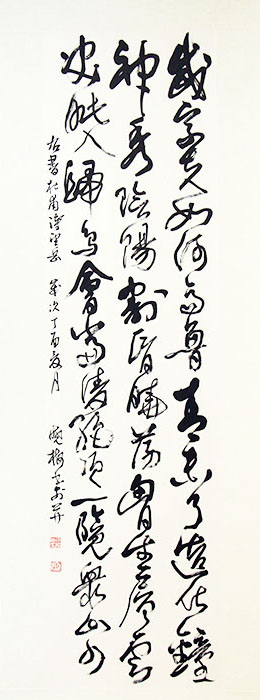 岱宗夫如何齊魯青未了造化鐘
神秀陰陽割昏曉蕩胸生層雲
決眥入歸鳥會當凌絕頂一覽衆山小
右書杜甫詩望岳 歲次丁酉夏月